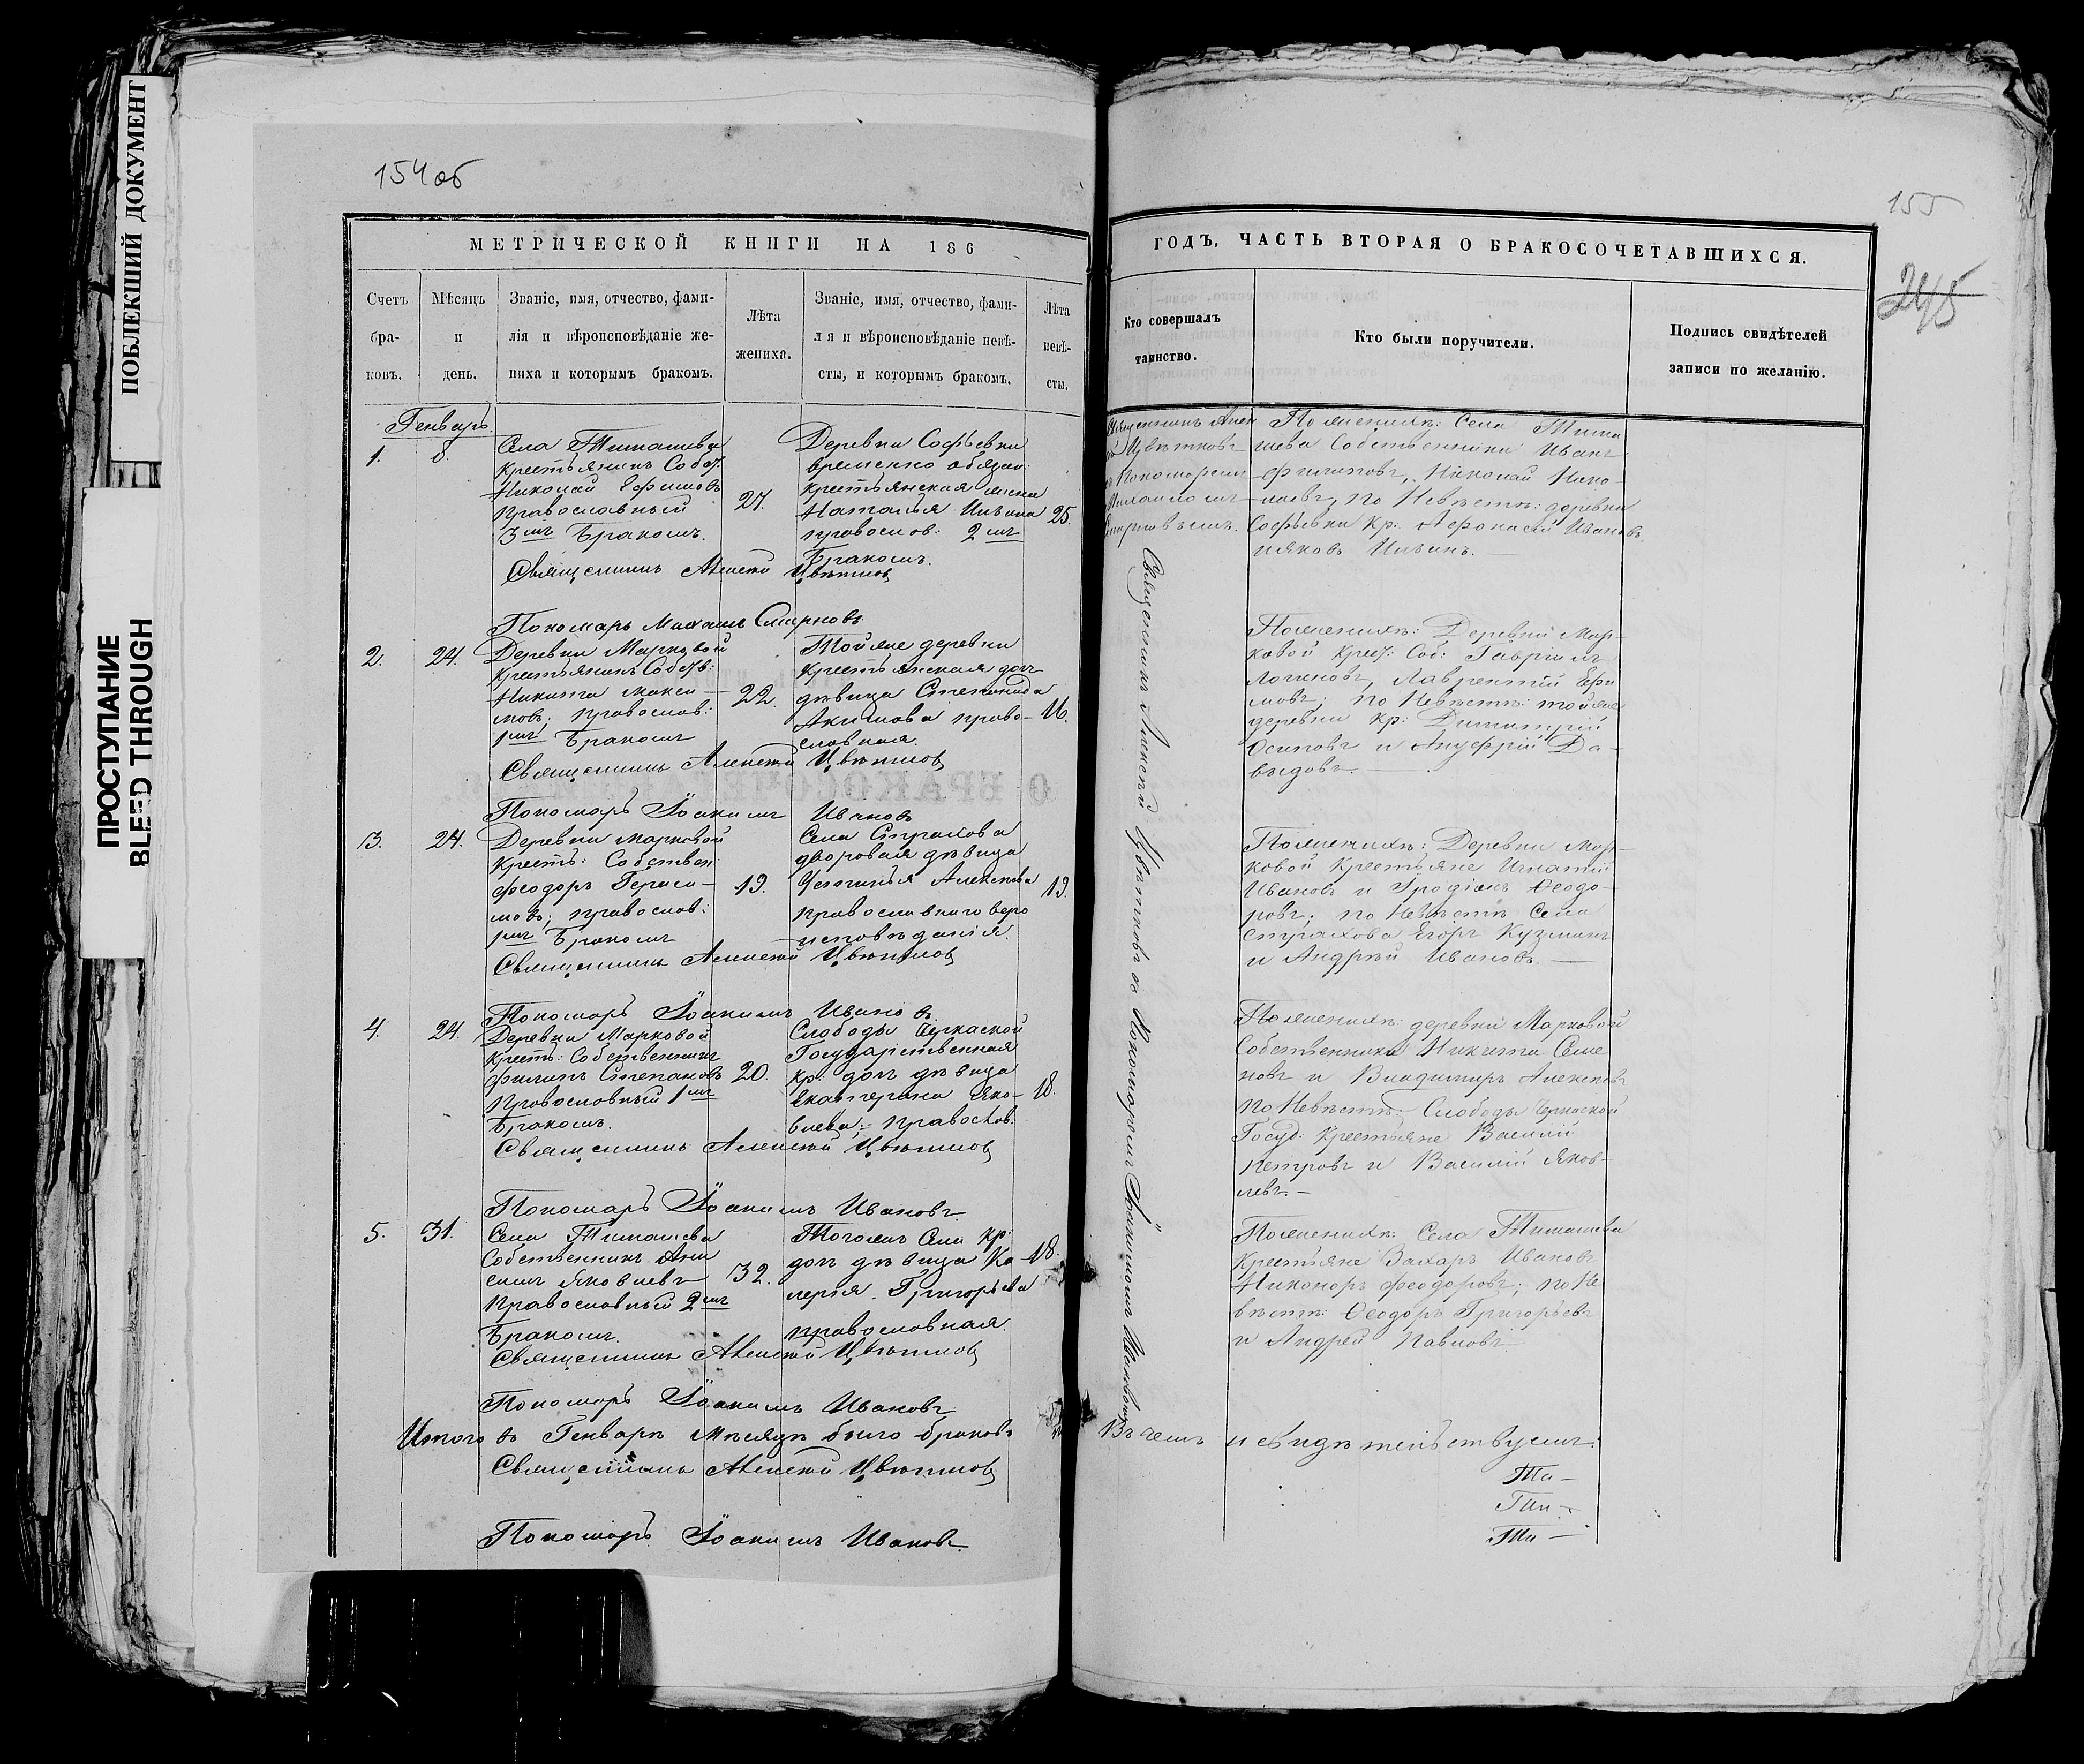 ПОБЛЕКШИЙ ДОКУМЕНТ
ПРОСТУПАНИЕ
BLEED THROUGH
154 об
МЕТРИЧЕСКОЙ КНИГИ НА 186
Счетъ бра- ковъ.
Мѣсяцъ и день.
Званіе, имя, отчество, фами-
лія и вѣроисповѣданіе же-
ниха и которымъ бракомъ.
Лѣта
жениха.
Званіе, имя, отчество, фами-
лія и вѣроисповѣданіе невѣ-
сты, и которымъ бракомъ.
Лѣта
невѣ-
сты.
Генварь.
1.
8.
Села Тимашева
крестьянинъ Собст.
Николай Ефимовъ
православный
3мъ Бракомъ.
27.
Деревни Софьевки
временно обязан:
крестьянская жена
Наталья Ильина
православ: 2мъ
Бракомъ.
25.
Священникъ Алексѣй Цвѣтковъ
Пономарь Михаилъ Смирновъ
2.
24.
Деревни Марковой
крестьянинъ Собств:
Никита Макси-
мовъ; православ:
1мъ Бракомъ
22.
Той же деревни
крестьянская дочь
дѣвица Степанида
Акимова право-
славная.
16.
Священникъ Алексѣй Цвѣтковъ
Пономарь Іоакимъ Ивановъ
3.
24.
Деревни Марковой
крестъ: Собствен:
Феодоръ Гераси-
мовъ; православ:
1мъ Бракомъ
19.
Села Страхова
дворовая дѣвица
Устинья Алексѣева
православнаго веро
исповѣданія.
19.
Священникъ Алексѣй Цвѣтковъ
Пономарь Іоакимъ Ивановъ
4
24.
Деревни Марковой
крестъ: Собственникъ
Филипъ Степановъ
православный 1мъ
Бракомъ.
20.
Слободы Черкаской
Государственная
кр: дочь дѣвица
Екатерина Яко-
влева; православ:
18.
Священникъ Алексѣй Цвѣтковъ
Пономарь Іоакимъ Ивановъ
5.
31.
Села Тимашева
Собственникъ Ани
симъ Яковлевъ
православный 2мъ
Бракомъ.
32.
Тогожъ Села кр:
дочь дѣвица Ка-
лерія Григорьева
православная.
18.
Священникъ Алексѣй Цвѣтковъ
Пономарь Іоакимъ Ивановъ
Итого въ Генварѣ мѣсяцѣ было браковъ
Священникъ Алексѣй Цвѣтковъ
Пономарь Іоакимъ Ивановъ
155
245
ГОДЪ, ЧАСТЬ ВТОРАЯ О БРАКОСОЧЕТАВШИХСЯ.
Кто совершалъ
таинство.
Кто были поручители.
Подпись свидѣтелей
записи по желанію.
Цвѣтковъ
Пономаремъ
Михаиломъ
Священникъ Алексѣй Цвѣтковъ съ Пономаремъ Іоакимомъ Ивановымъ
По женихѣ: Села Тима
шева Собственники Иванъ
Филиповъ, Николай Нико-
лаевъ, по Невѣстѣ: деревни
Софьевки кр: Афонасій Ивановъ
Яковъ Ильинъ.
По женихѣ: Деревни Мар-
ковой крест: Соб: Гавріилъ
Логиновъ, Лаврентій Ефи
мовъ; по Невѣстѣ: той же
деревни кр: Димитрій
Осиповъ и Ануфрій Да-
выдовъ.
По женихѣ: Деревни Мар-
ковой крестьяне Игнатій
Ивановъ и Иродіонъ Ѳеодо-
ровъ; по Невѣстѣ Села
Страхова Егоръ Кузминъ
и Андрѣй Ивановъ.
По женихѣ: деревни Марковой
Собственники Никита Семе
новъ и Владимиръ Алексѣевъ
По Невѣстѣ: Слободы Черкаской
Госуд: крестьяне Василій
Петровъ и Василій Яков-
левъ.
По женихѣ: Села Тимашева
крестьяне Захаръ Ивановъ
Никоноръ Феодоровъ; по Не
вѣстѣ: Ѳеодоръ Григорьевъ
и Андрей Павловъ
Въ чемъ и свидѣтельствуемъ: